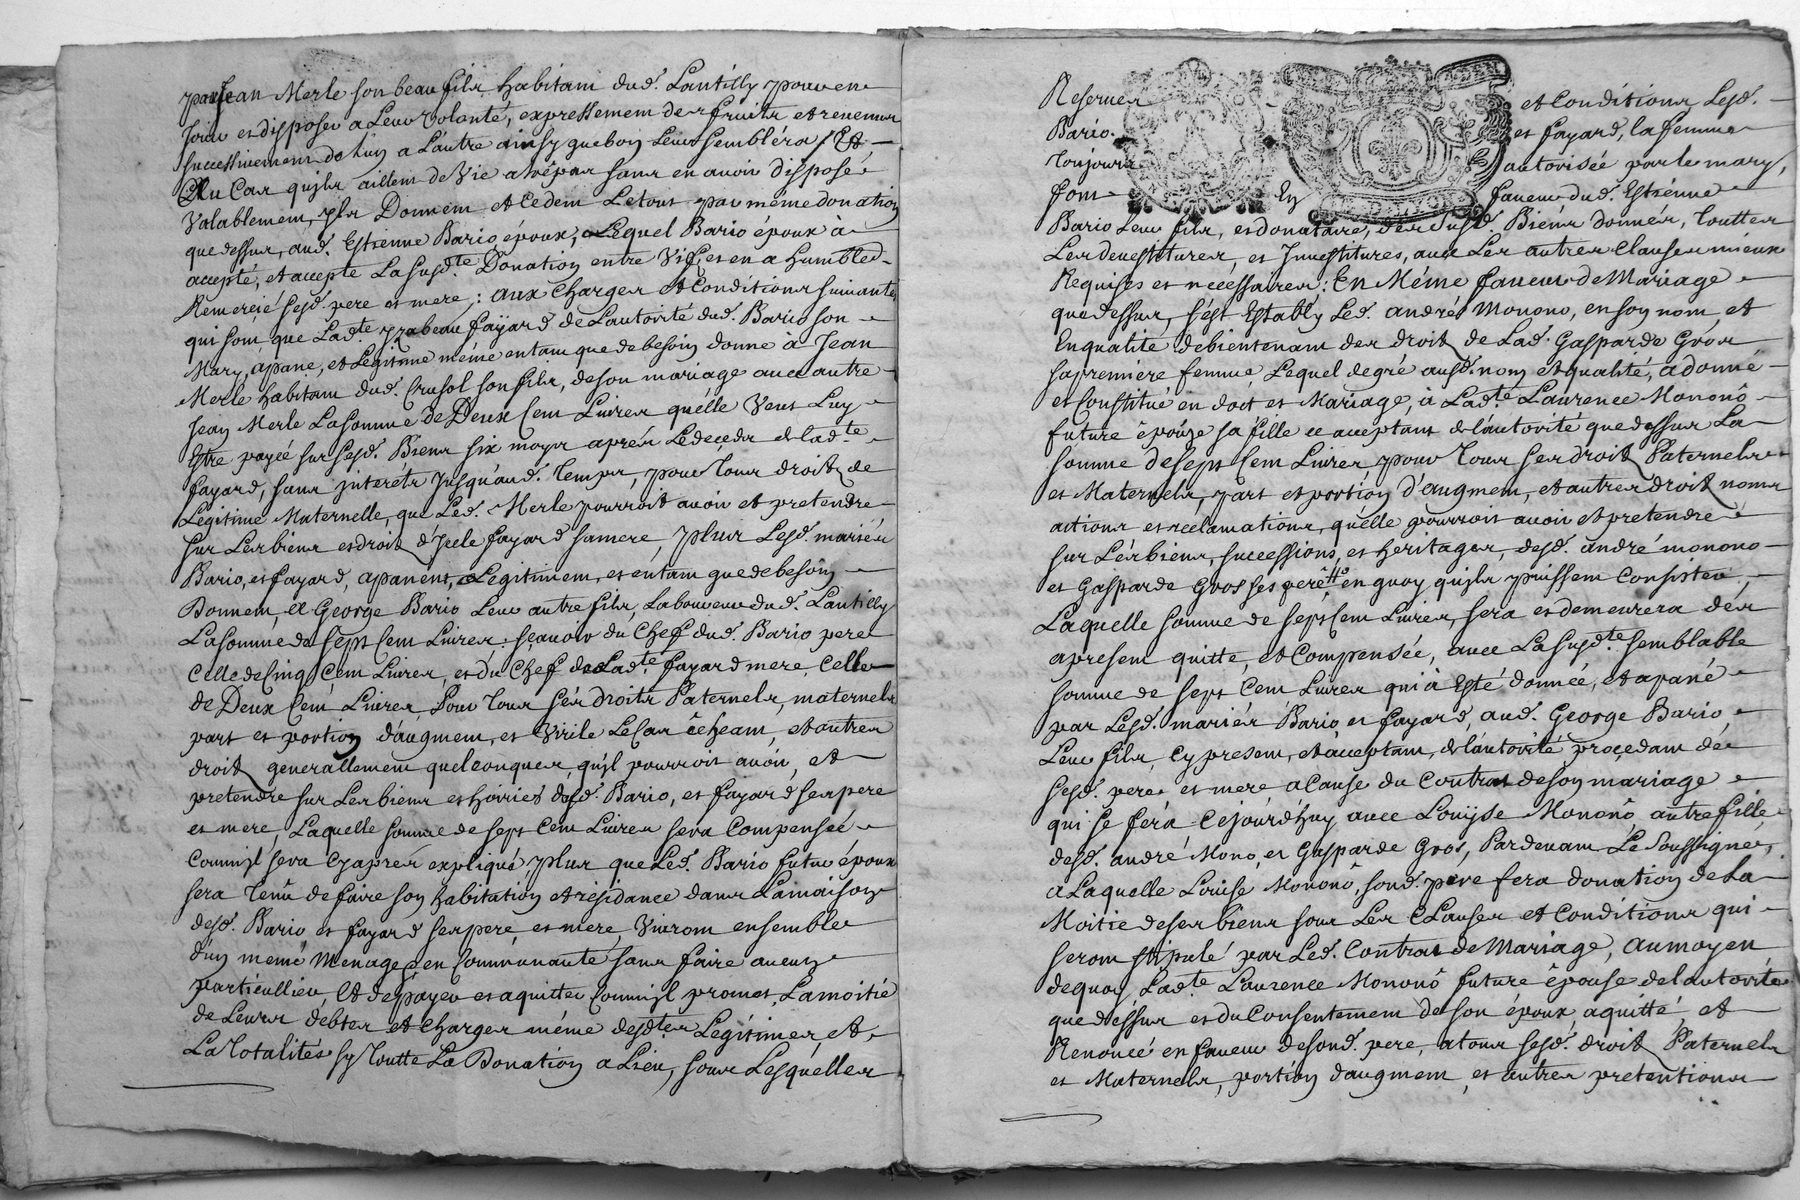 par Jean Merle son beau fils habitant dud. Lantilly pour en
Jouir et disposer a Leur volonté, expressement des fruits et revenus
successivement de luy a L'autre ainsy que bon Leur semblera, Et
Au Cas qu'jls aillent de Vie a trépas sans en avoir disposé
Valablement, jls Donnent et Cedent Le tout par même donation
que dessus, aud. Estienne Bario époux, Lequel Bario époux à
accepté, et accepte La susd.te Donation entre Vifs, et en a humblem.
Remercié sesd. pere et mere; aux charges et Conditions suivantes
qui sont que Lad.te jzabeau faÿard de L'autorité dud. Bario son
Mary, apane, et Legitime même entant que de besoin donne à Jean
Merle habitant dud. Crusol son fils, de son mariage avec autre
Jean Merle La somme de Deux Cent Livres qu'elle Veut Luy
Estre payéé sur sesd. Biens six moys aprés Le decéds de lad.te
fayard, sans jnteréts Jusqu'aud. temps, pour tous droits de
Legitime Maternelle, que Led. Merle pourroit avoir et pretendre
sur Les biens et droits d'Jcelle fayard sa mere, plus Lesd. mariés
Bario, et fayard, apanent, Legitiment, et entant que de besoin
Donnent, a George Bario Leur autre fils, Laboureur dud. Lantilly
La somme de sept Cent Livres; sçauoir du Chef dud. Bario pere
Celle de Cinq Cent Livres, et du Chef de Lad.te fayard mere, Celle
de Deux Cent Livres, Pour tous sés droits Paternels, maternels
part et portion d'augment, et Virile Le Cas êcheant, et autres
droits generallement quelconques, qu'jl pourroit avoir, et
pretendre sur Les biens et hoiries desd. Bario, et fayard ses pere
et mere, Laquelle somme de sept Cent Livres sera Compensée
Comm'jl sera Cy apres expliqué, plus que Led. Bario futur époux
sera tenu de faire son habitation et résidance dans La maison
desd. Bario et fayard ses pere et mere, Viuront ensemble
d'un meme menage, en Communauté sans faire aucun
particullier, Et de payer et aquitter Comm'jl promet, La moitié
de Leurs debtes et charges même desd.tes Legitimes, et
La totalités sy toutte La Donation a Lieu, sous Lesquelles
Reserues et Conditions Lesd.
Bario et fayard, la femme
toujours autorisée par le mary,
font En faveur dud. Estienne
Bario Leur fils, et donataire, des susd. Biens donnés, touttes
Les devestitures, et Jnvestitures, avec Les autres Clauses mieux
Requises et necessaires: En Même faveur de Mariage
que dessus, s'est Estably Led. andré Monono, en son nom, et
En qualité de bientenant des droits de Lad. Gasparde Gros
sa premiere femme, Lequel de gré ausd. nom et qualité, a donné
et Constitué en doct et Mariage, à Lad.te Laurence Mononô
future épouse sa fille ce acceptant de L'autorité que dessus La
somme de sept Cent Livres, pour tous ses droits Paternels
et Maternels, part et portion d'augment, et autres droits noms
actions et reclamations, qu'elle pourroit avoir et pretendre
sur Les biens, successions, et heritages, desd. andré monono
et Gasparde Gros ses pere, en quoy qu'jls puissent Consister,
Laquelle somme de sept Cent Livres, sera et demeurera dés
apresent quitte, et Compensée, avec La susd.te semblable
somme de sept Cent Livres qui à Esté donnée, et apané
par Lesd. mariés Bario et fayard, aud. George Bario
Leur fils, Cy present, et acceptant, de L'autorité procedant de
sesd. pere et mere a Cause du Contrat de son mariage
qui se fera Cejourd'huy avec Louÿse Mononô autre fille
desd. andré Mono, et Gasparde Gros, Pardevant Le soussigné,
a Laquelle Loüise Mononô, sond. pere fera donation de La
Moitie de ses biens sous Les Clauses et Conditions qui
seront stipulé par Led. Contrat de Mariage, au moyen
de quoy Lad.te Laurence Mononô future êpouse de L'autorité
que dessus et du Consentement de son époux, aquitté et
Renoncé en faveur de sond. pere, a tous sesd. droits Paternels
et Maternels, portion d'augment, et autres pretentions